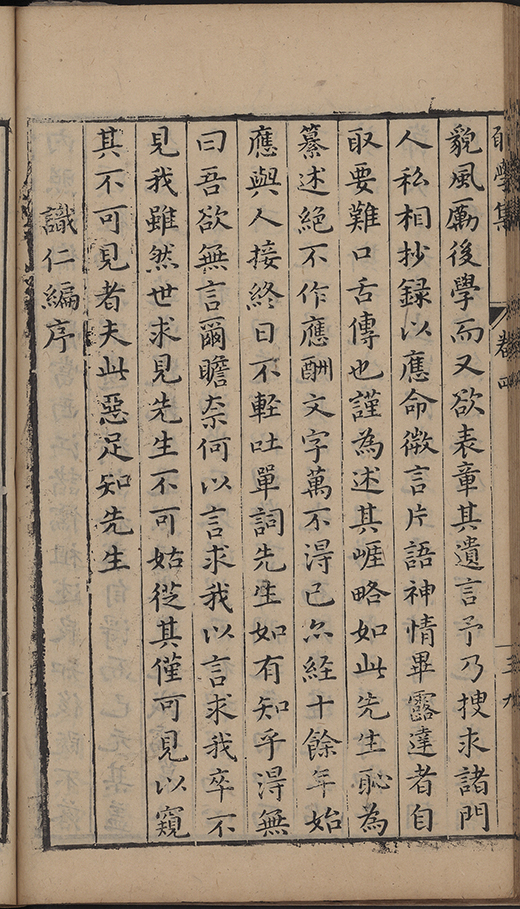 學集
卷四
貌風勵後學而又欲表章其遺言予乃搜求諸門
人私相抄録以應命微言片語神情畢露達者自
取要難口舌傳也謹為述其崕略如此先生恥為
纂述絶不作應酬文字萬不得已亦經十餘年始
應與人接終日不輕吐單詞先生如有知乎得無
曰吾欲無言爾瞻奈何以言求我以言求我卒不
見我雖然世求見先生不可姑從其僅可見以窺
其不可見者夫此惡足知先生
識仁編序